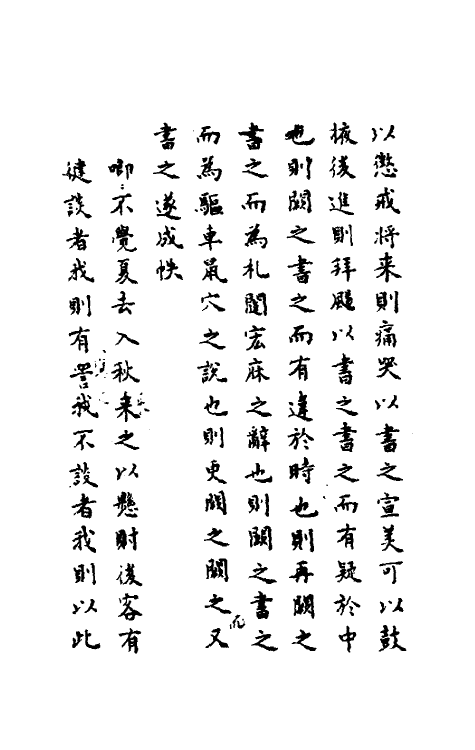 以懲戒將来則痛哭以書之宣美可以鼓
掖後進則拜颺以書之書之而有疑於中
也則闕之書之而有違於時也則再闕之
書之而為札闥宏庥之辭也則闕之書之
而為驅車鼠穴之說也則更闕之闕之又
書之遂成帙
唧:不覺夏去入秋来之以懸肘後客有
健談者我則有 我不談者我則以此